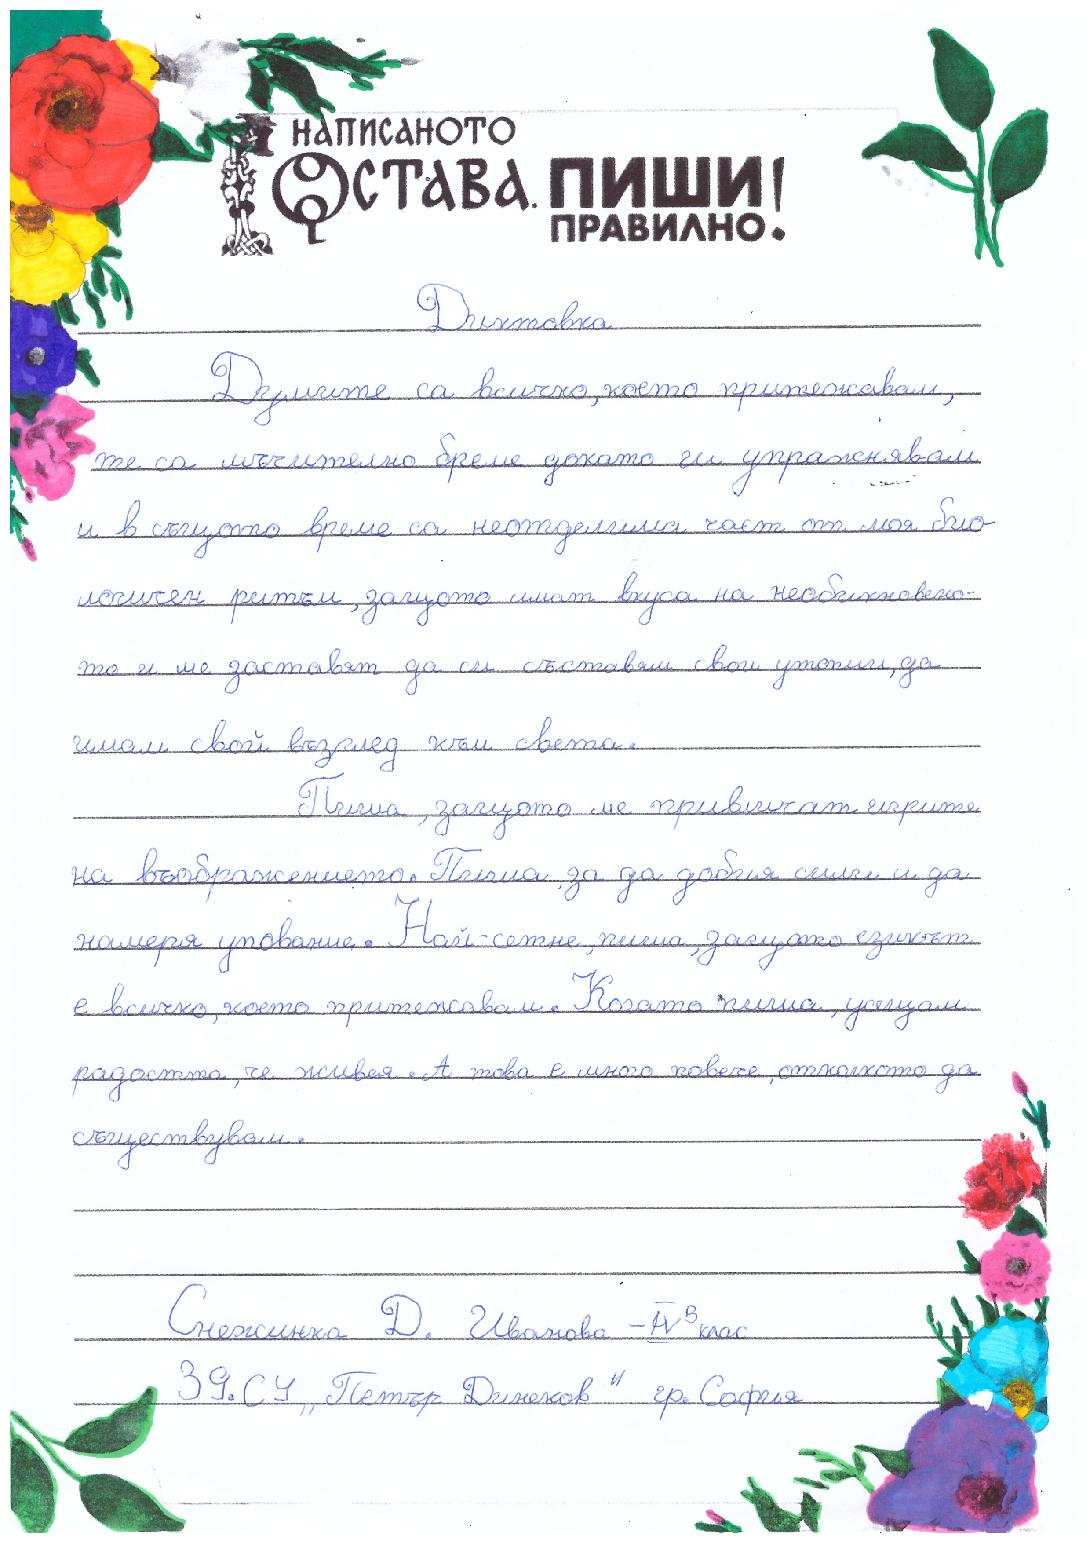 НАПИСАНОТО
ОСТАВА. ПИШИ
ПРАВИЛНО!
Диктовка
Думите са всичко, което притежавам,
те са мъчително бреме докато ги упражнявам
и в същото време са неотделима част от моя био-
логичен ритъм, защото имат вкуса на необикновено-
то и ме заставят да си съставям свои утопии, да
имам свой възглед към света.
Пиша, защото ме привличат игрите
на въображението. Пиша, за да добия сили и да
намеря упование. Най-сетне, пиша, защото езикът
е всичко, което притежавам. Когато пиша, усещам
радостта, че живея. А това е много повече, отколкото да
съществувам.
Снежинка Д. Иванова - IV В клас
39. СУ „Петър Динеков" гр. София